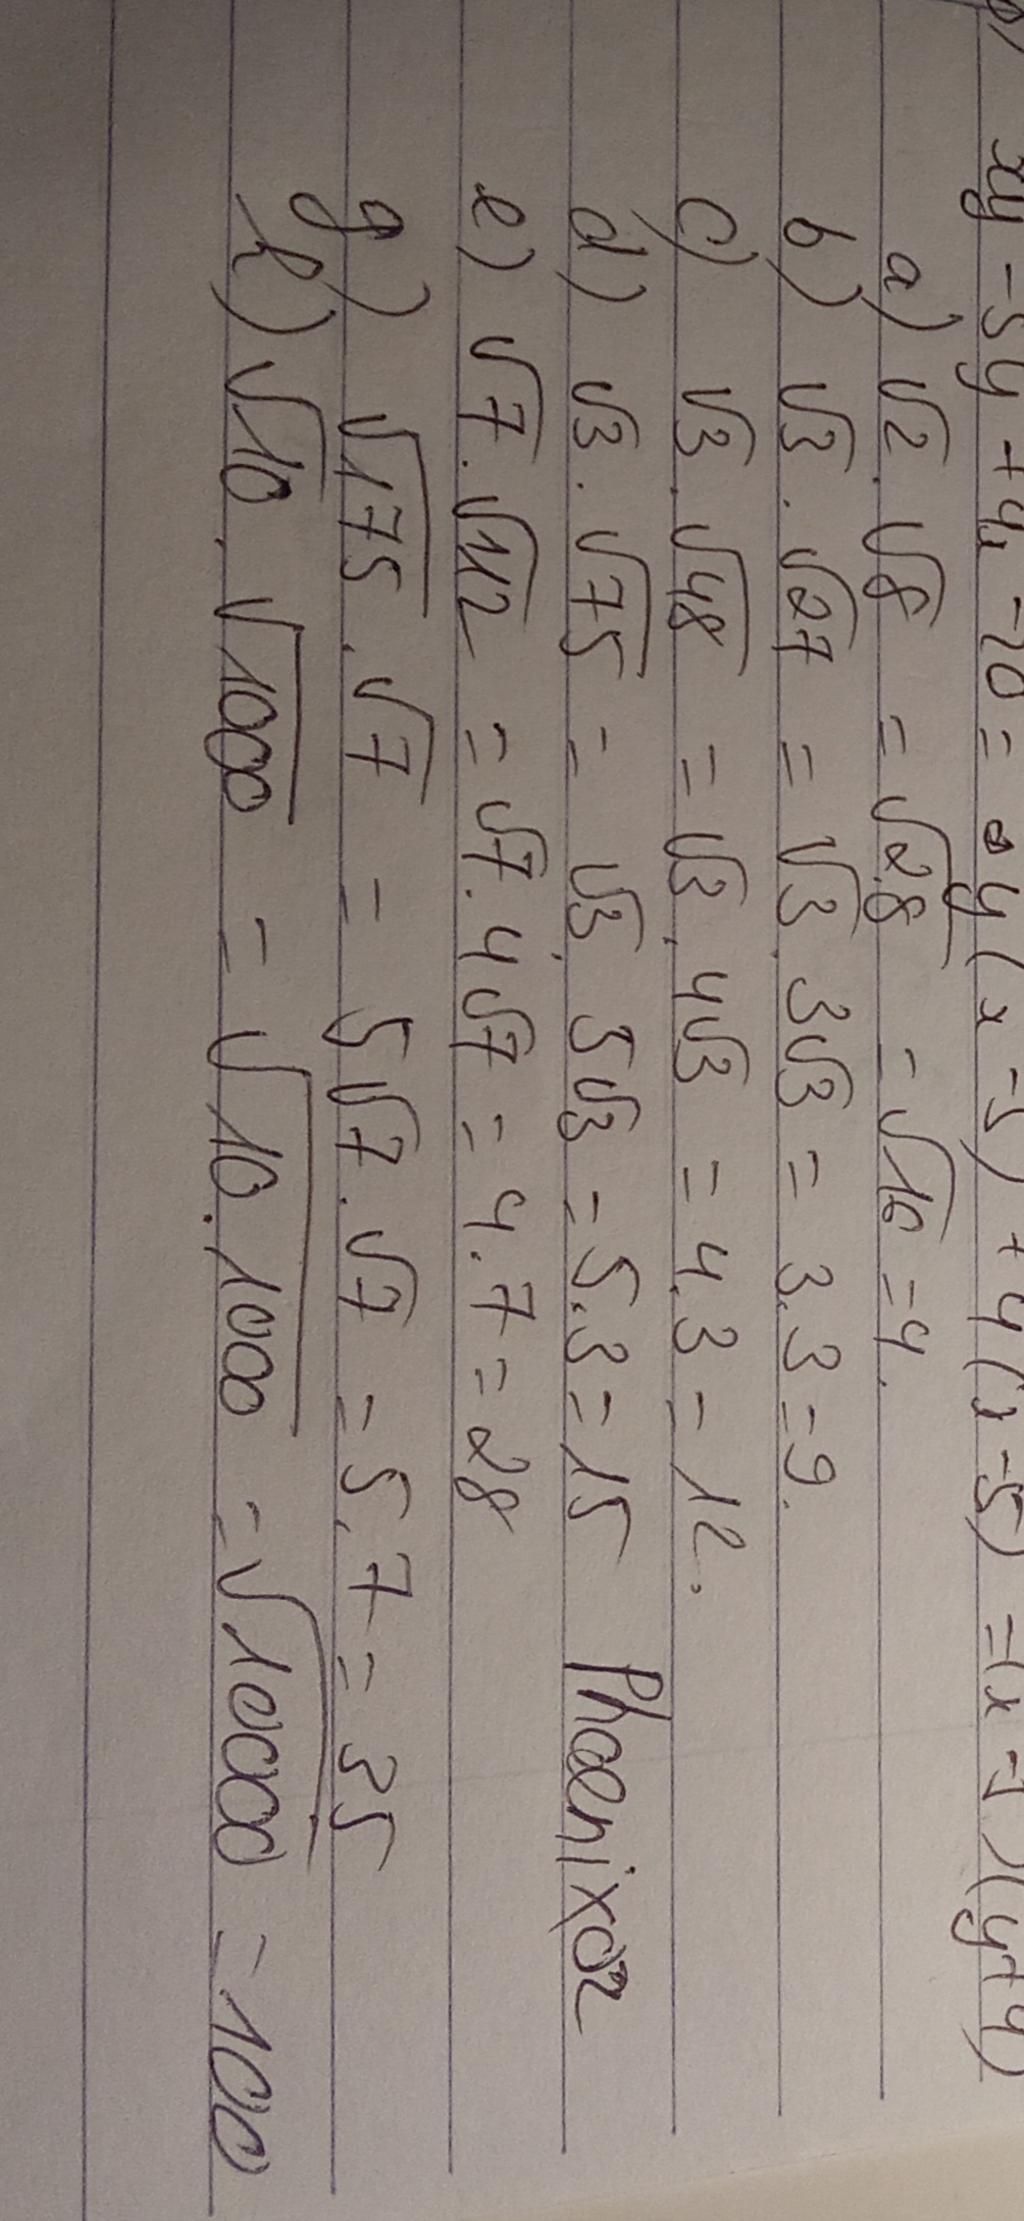 xy - 5y + 4x - 20 = y(x - 5) + 4(x - 5) = (x - 5)(y + 4)
a) √2 . √8 = √2.8 = √16 = 4.
b) √3 . √27 = √3 . 3√3 = 3.3 = 9.
c) √3 . √48 = √3 . 4√3 = 4.3 = 12.
d) √3 . √75 = √3 . 5√3 = 5.3 = 15 Phoenixoz
e) √7 . √112 = √7 . 4√7 = 4.7 = 28
g) √175 . √7 = 5√7 . √7 = 5.7 = 35
h) √10 . √1000 = √10.1000 = √10000 = 100